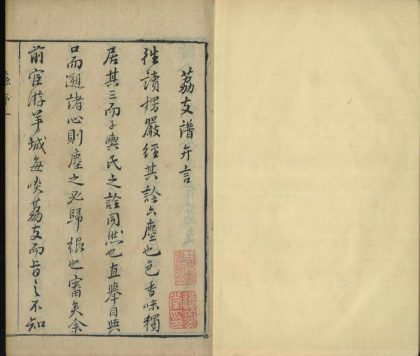 荔支譜弁言
徃讀楞嚴經其詮六塵也色香味獨
居其三而子輿氏之詮同然也直舉自與
口而遡諸心則塵之必歸根也審矣余
前宦游羊城每啖荔支而旨之不知